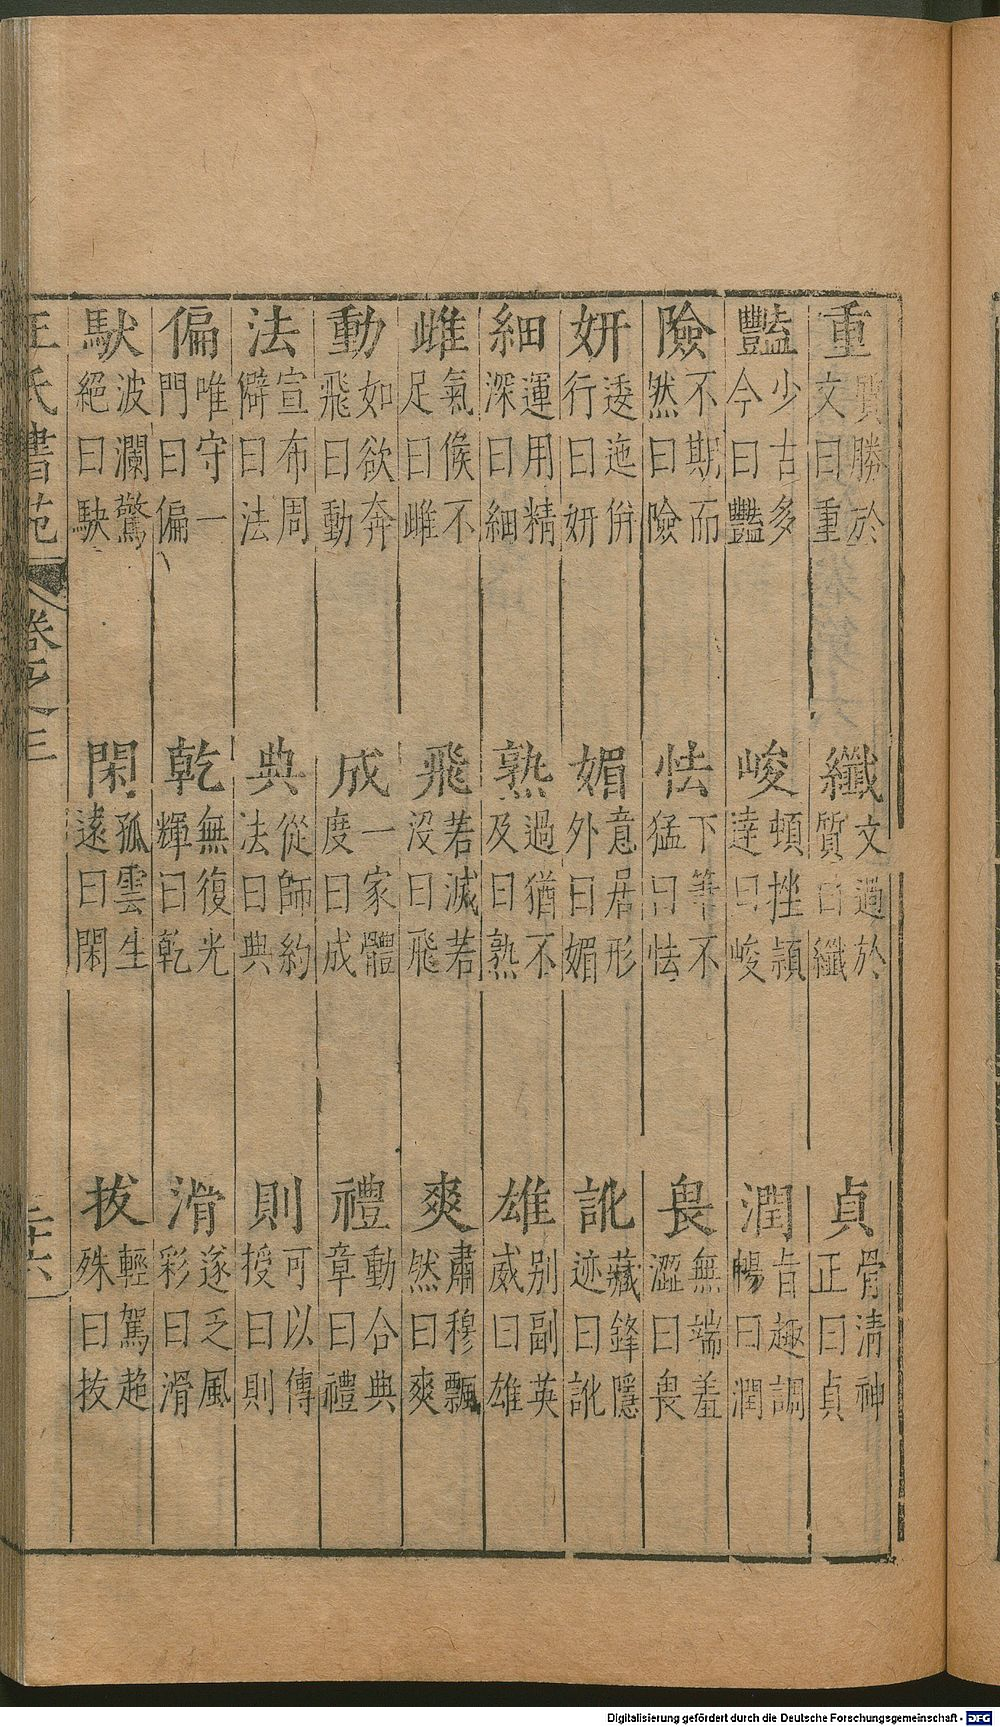 重 質勝於文曰重 纖 文過於質曰纖 貞 骨清神正曰貞
豔 少古多今曰豔 峻 頓挫頴達曰峻 潤 旨趣調暢曰潤
險 不期而然曰險 怯 下筆不猛曰怯 畏 無端羞澀曰畏
妍 逶迤併行曰妍 媚 意居形外曰媚 訛 藏鋒隱迹曰訛
細 運用精深曰細 熟 過猶不及曰熟 雄 别副英威曰雄
雌 氣候不足曰雌 飛 若滅若没曰飛 爽 肅穆飄然曰爽
動 如欲奔飛曰動 成 一家體度曰成 禮 動合典章曰禮
法 宣布周僻曰法 典 從師約法曰典 則 可以傳授曰則
偏 唯守一門曰偏 乾 無復光輝曰乾 滑 遂乏風彩曰滑
駃 波瀾驚絕曰駃 閑 孤雲生遠曰閑 拔 輕駕超殊曰拔
王氏書苑 卷之三 二十六
Digitalisierung gefördert durch die Deutsche Forschungsgemeinschaft - DFG